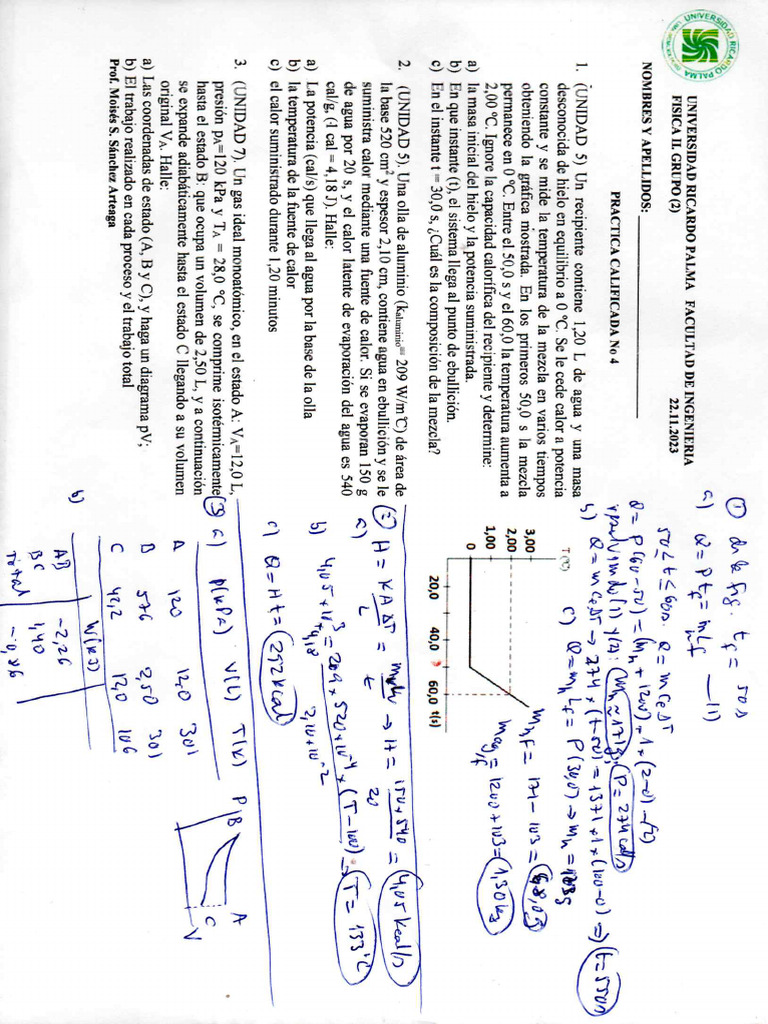 UNIVERSIDAD RICARDO PALMA
UNIVERSIDAD RICARDO PALMA FACULTAD DE INGENIERIA
FISICA II. GRUPO (2) 22.11.2023
PRACTICA CALIFICADA No 4
NOMBRES Y APELLIDOS:
1. (UNIDAD 5) Un recipiente contiene 1,20 L de agua y una masa
desconocida de hielo en equilibrio a 0 ºC. Se le cede calor a potencia
constante y se mide la temperatura de la mezcla en varios tiempos
obteniendo la gráfica mostrada. En los primeros 50,0 s la mezcla
permanece en 0 ºC. Entre el 50,0 s y el 60,0 la temperatura aumenta a
2,00 ºC. Ignore la capacidad calorífica del recipiente y determine:
a) la masa inicial del hielo y la potencia suministrada.
b) En que instante (t), el sistema llega al punto de ebullición.
c) En el instante t = 30,0 s, ¿Cuál es la composición de la mezcla?
T (ºC)
3,00
2,00
1,00
0
20,0 40,0 60,0 t(s)
2. (UNIDAD 5). Una olla de aluminio (kaluminio= 209 W/m ºC) de área de
la base 520 cm2 y espesor 2,10 cm, contiene agua en ebullición y se le
suministra calor mediante una fuente de calor. Si se evaporan 150 g
de agua por 20 s, y el calor latente de evaporación del agua es 540
cal/g, (1 cal = 4,18 J). Halle:
a) La potencia (cal/s) que llega al agua por la base de la olla
b) la temperatura de la fuente de calor
c) el calor suministrado durante 1,20 minutos
3. (UNIDAD 7). Un gas ideal monoatómico, en el estado A: VA=12,0 L,
presión pA=120 kPa y TA = 28,0 ºC, se comprime isotérmicamente
hasta el estado B: que ocupa un volumen de 2,50 L, y a continuación
se expande adiabáticamente hasta el estado C llegando a su volumen
original VA. Halle:
a) Las coordenadas de estado (A, B y C), y haga un diagrama pV;
b) El trabajo realizado en cada proceso y el trabajo total
Prof. Moisés S. Sánchez Arteaga
① de la fig. tf = 50s
a) Q = P tf = mh Lf — (1)
50 ≤ t ≤ 60s. Q = m Ce ΔT
Q = P(60-50) = (mh + 1200) * 1 * (2-0) — (2)
resolviendo (1) y (2): mh = 171g, P = 274 cal/s
b) Q = m Ce ΔT → 274 * (t-50) = 1371 * 1 * (100-0) ⇒ t = 550s
c) Q = mh Lf = P(30,0) → mh = 103g
mhf = 171 - 103 = 68,0g
magf = 1200 + 103 = 1,30 kg
② H = KAΔT/L = mLv/t → H = 150*540/20 = 4,05 kcal/s
a)
b) 4,05*10^3 * 4,18 = 209 * 520*10^-4 * (T-100) / 2,10*10^-2 → T = 133ºC
c) Q = Ht = 292 kcal
③ a) P(kPa) V(L) T(K)
A 120 12,0 301
B 576 2,50 301
C 42,2 12,0 106
P B A C V
b) W(kJ)
AB -2,26
BC 1,40
Total -0,86